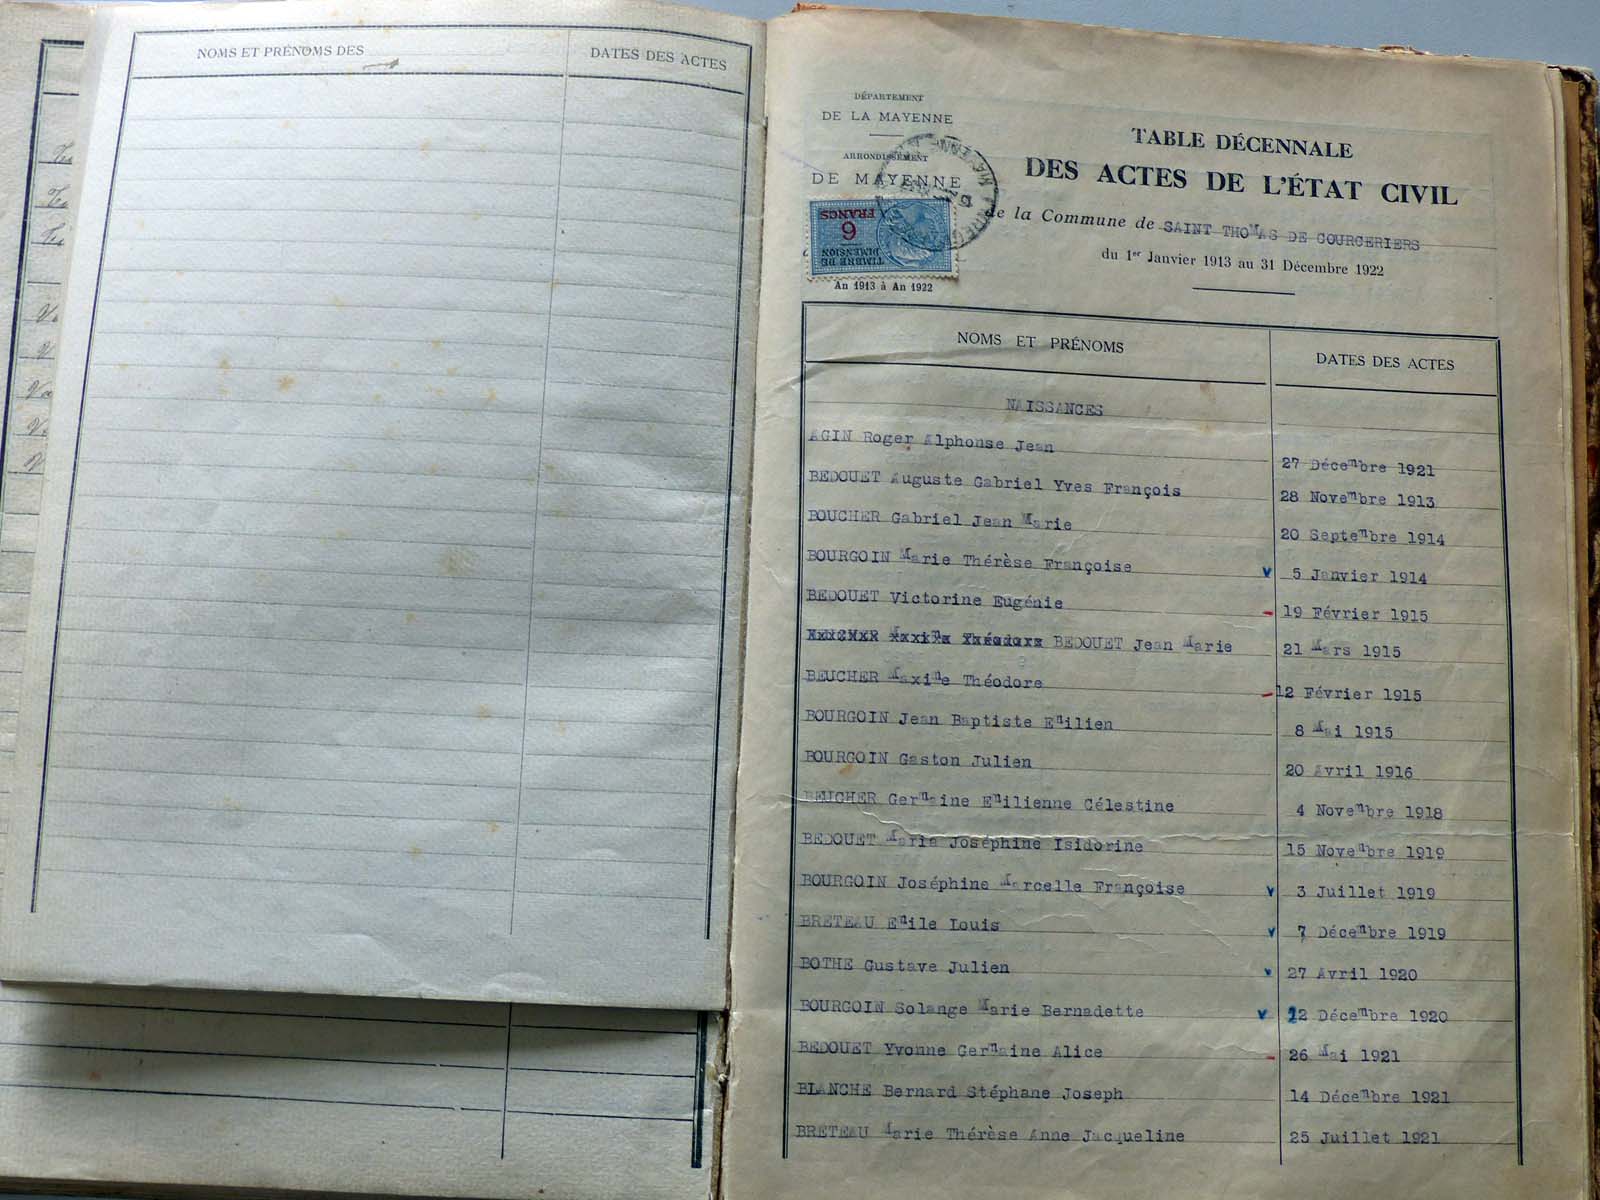 NOMS ET PRÉNOMS DES
DATES DES ACTES
DÉPARTEMENT
DE LA MAYENNE
ARRONDISSEMENT
DE MAYENNE
TIMBRE DE
DIMENSION
6
FRANCS
An 1913 à An 1922
TABLE DÉCENNALE
DES ACTES DE L'ÉTAT CIVIL
de la Commune de SAINT THOMAS DE COURCERIERS
du 1er Janvier 1913 au 31 Décembre 1922
NOMS ET PRÉNOMS DATES DES ACTES
NAISSANCES
AGIN Roger Alphonse Jean 27 Décembre 1921
BEDOUET Auguste Gabriel Yves François 28 Novembre 1913
BOUCHER Gabriel Jean Marie 20 Septembre 1914
BOURGOIN Marie Thérèse Françoise v 5 Janvier 1914
BEDOUET Victorine Eugénie - 19 Février 1915
BEDOUET Jean Marie 21 Mars 1915
BEUCHER Maxime Théodore - 12 Février 1915
BOURGOIN Jean Baptiste Emilien 8 Mai 1915
BOURGOIN Gaston Julien 20 Avril 1916
BEUCHER Germaine Emilienne Célestine 4 Novembre 1918
BEDOUET Maria Joséphine Isidorine 15 Novembre 1919
BOURGOIN Joséphine Marcelle Françoise v 3 Juillet 1919
BRETEAU Emile Louis v 7 Décembre 1919
BOTHE Gustave Julien v 27 Avril 1920
BOURGOIN Solange Marie Bernadette v 12 Décembre 1920
BEDOUET Yvonne Germaine Alice - 26 Mai 1921
BLANCHE Bernard Stéphane Joseph 14 Décembre 1921
BRETEAU Marie Thérèse Anne Jacqueline 25 Juillet 1921